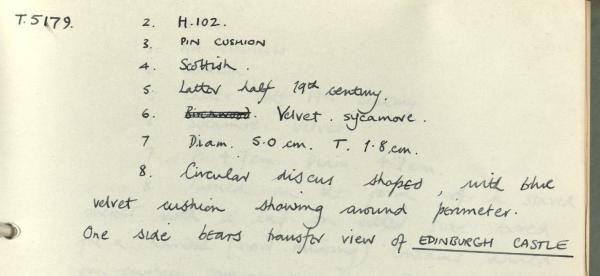 T.5179. 2. H.102.
3. PIN CUSHION
4. Scottish.
5 Latter half 19th century.
6. Birchwood. Velvet. sycamore.
7 Diam. 5.0 cm. T. 1.8 cm.
8. Circular discus shaped, with blue
velvet cushion showing around perimeter.
One side bears transfer view of EDINBURGH CASTLE